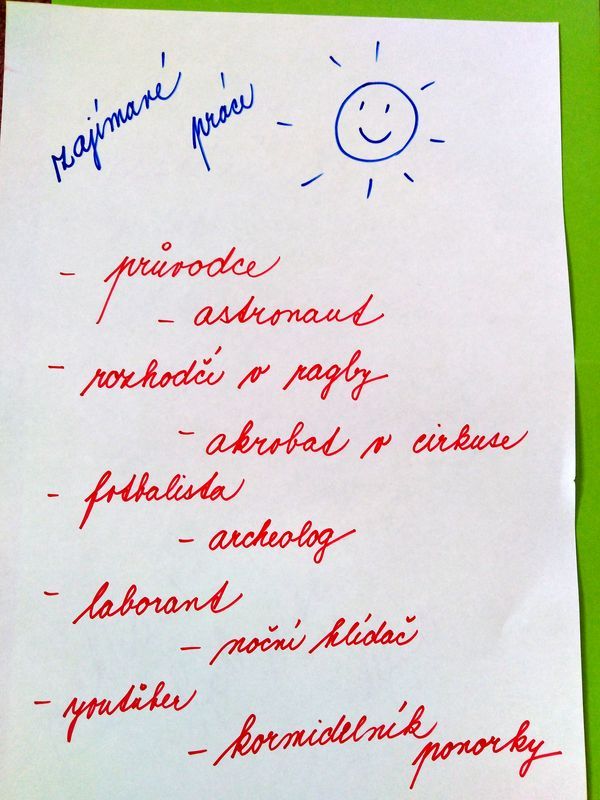 zajímavé práce
- průvodce
- astronaut
- rozhodčí v ragby
- akrobat v cirkuse
- fotbalista
- archeolog
- laborant
- noční hlídač
- youtůber
- kormidelník
ponorky